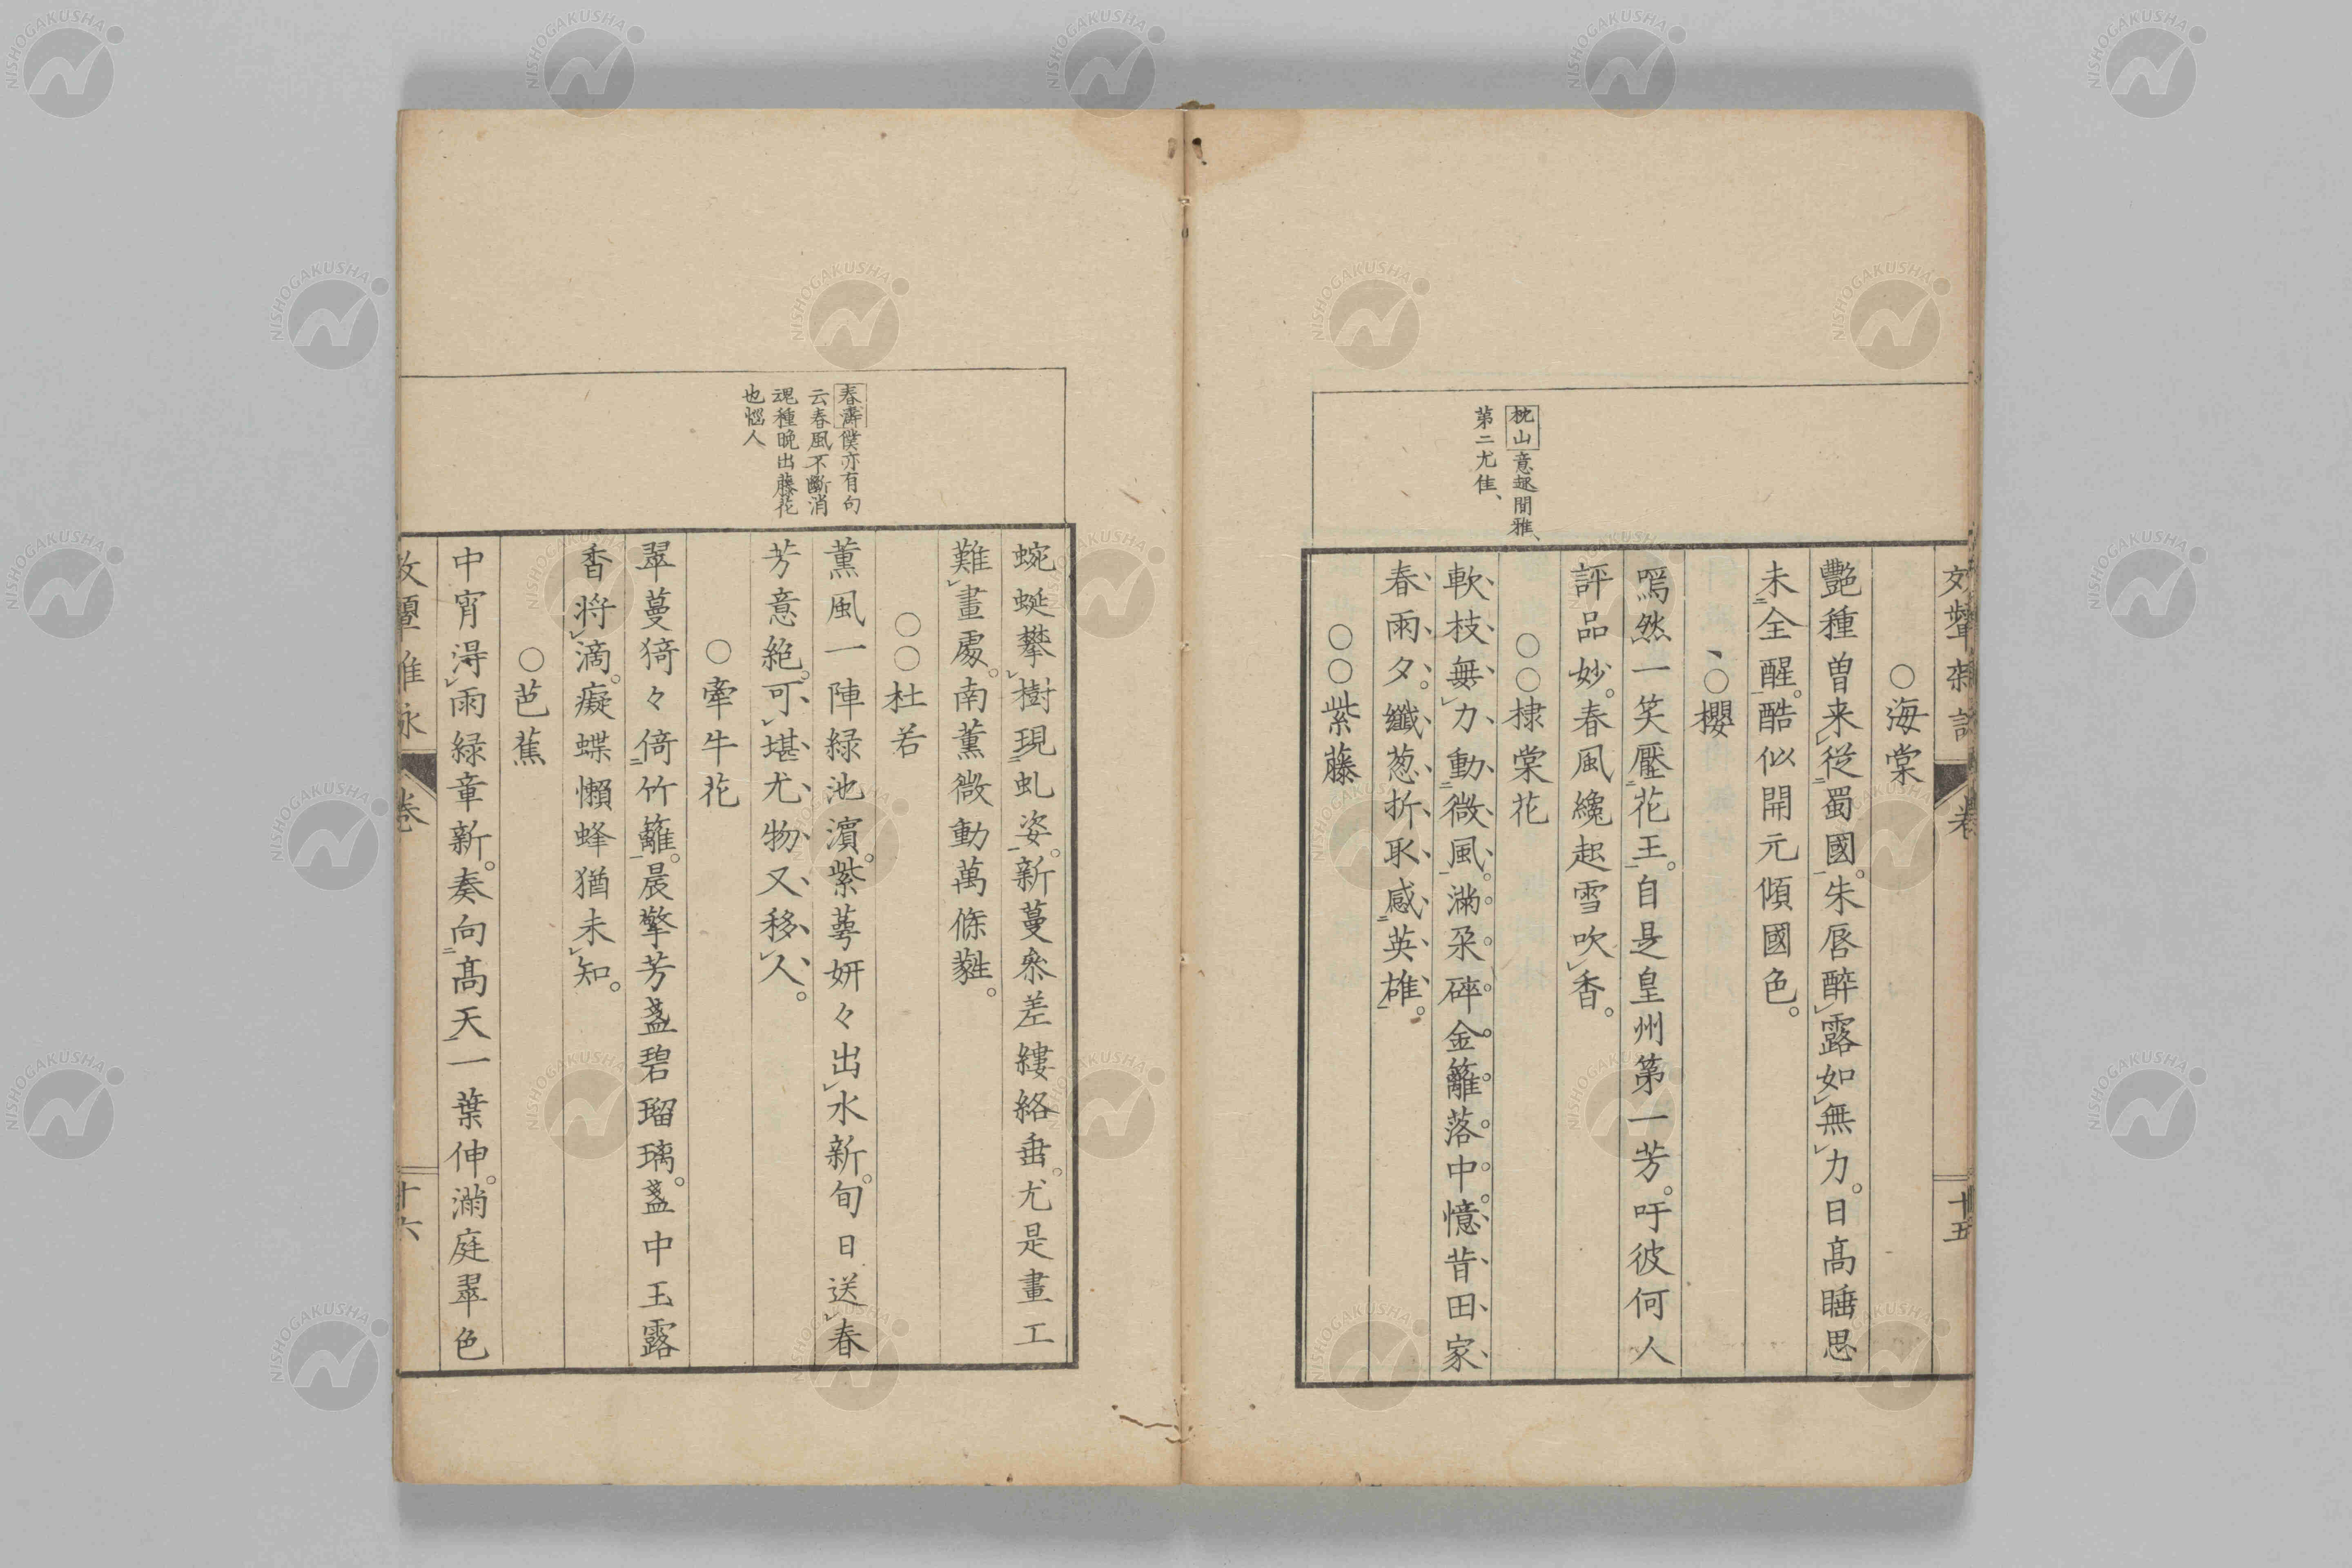 ○海棠
艷種曽来從蜀國。朱唇醉露如無力。日高睡思
未全醒。酷似開元傾國色。
、○櫻
嫣然一笑壓花王。自是皇州第一芳。吁彼何人
評品妙。春風纔起雪吹香。
○○棣棠花
軟枝無力動微風。滿朶碎金籬落中。憶昔田家
春雨夕。纖葱折取感英雄。
○○紫藤
枕山意趣間雅、
第二尤佳、
十五
蜿蜒攀樹現虬姿。新蔓叅差縷絡垂。尤是畫工
難畫處。南薫微動萬條蕤。
○○杜若
薫風一陣緑池濵。紫萼妍々出水新。旬日送春
芳意絶。可堪尤物又移人。
○牽牛花
翠蔓猗々倚竹籬。晨擎芳盞碧瑠璃。盞中玉露
香将滴。癡蝶懶蜂猶未知。
○芭蕉
中宵淂雨緑章新。奏向髙天一葉伸。滿庭翠色
春濤僕亦有句
云春風不斷消
魂種晩出藤花
也惱人
十六
NISHOGAKUSHA